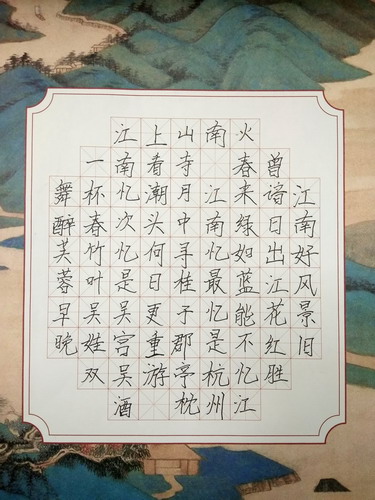 江南好风景旧
曾谙日出江花红胜
火春来绿如蓝能不忆江
南 江南忆最忆是杭州
山寺月中寻桂子郡亭枕
上看潮头何日更重游
江南忆次忆是吴宫吴酒
一杯春竹叶吴娃双
舞醉芙蓉早晚